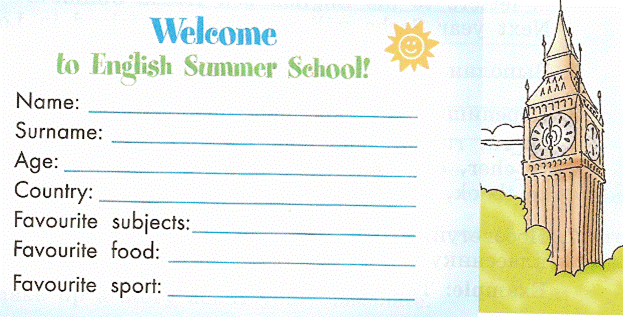 Welcome
to English Summer School!
Name:
Surname:
Age:
Country:
Favourite subjects:
Favourite food:
Favourite sport: